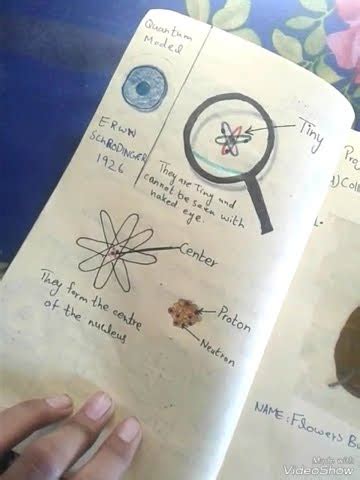 Quantum
Model
ERWIN
SCHRODINGER
1926
Tiny
They are Tiny and
cannot be seen with
naked eye.
Center
They form the centre
of the nucleus
Proton
Neutron
NAME: Flowers
Made with
VideoShow